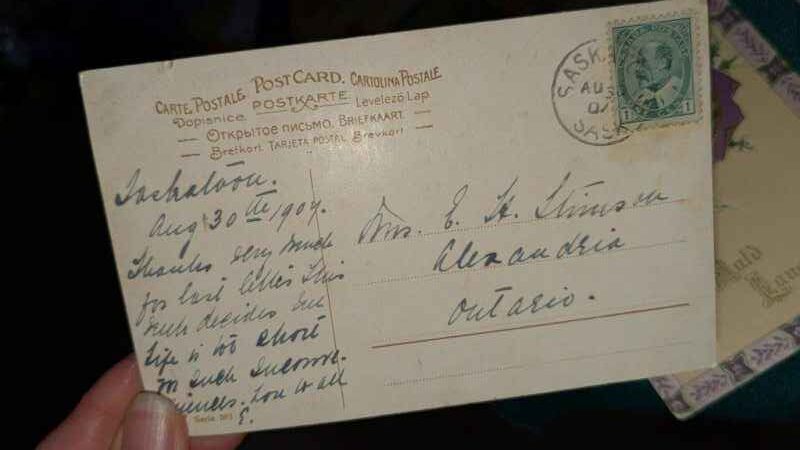 POST CARD.
CARTE POSTALE CARTOLINA POSTALE
Dopisnice. POSTKARTE. Levelező Lap.
ОТКРЫТОЕ ПИСЬМО. BRIEFKAART.
Brefkort. TARJETA POSTAL Brevkort
SASK
AU 30
07
SASK
1 1
Saskatoon.
Aug 30th 1907.
Thanks very much
for last letter this
much decides but
Life is too short
for such Inconve-
niences. Love to all
E.
Mrs. E. H. Stimson
Alexandria
Ontario.
Serie
Auld Lang